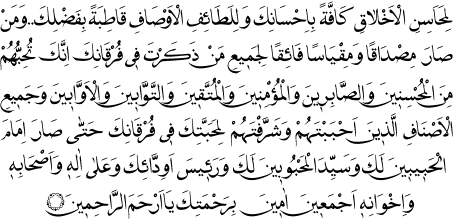 لِمَحَاسِنِ الْاَخْلَاقِ كَافَّةً بِاِحْسَانِكَ وَلِلَطَائِفِ الْاَوْصَافِ قَاطِبَةً بِفَضْلِكَ.. وَمَنْ
صَارَ مِصْدَاقًا وَمِقْيَاسًا فَائِقًا لِجَمِيعِ مَنْ ذَكَرْتَ فِى فُرْقَانِكَ اِنَّكَ تُحِبُّهُمْ
مِنَ الْمُحْسِنِينَ وَالصَّابِرِينَ وَالْمُؤْمِنِينَ وَالْمُتَّقِينَ وَالتَّوَّابِينَ وَالْاَوَّابِينَ وَجَمِيعِ
الْاَصْنَافِ الَّذِينَ اَحْبَبْتَهُمْ وَشَرَّفْتَهُمْ لِمَحَبَّتِكَ فِى فُرْقَانِكَ حَتّٰى صَارَ اِمَامَ
الْحَبِيبِينَ لَكَ وَسَيِّدَ الْمَحْبُوبِينَ لَكَ وَرَئِيسَ اَوِدَّائِكَ وَعَلٰى اٰلِهِ وَاَصْحَابِهِ
وَاِخْوَانِهِ اَجْمَعِينَ اٰمِينَ بِرَحْمَتِكَ يَا اَرْحَمَ الرَّاحِمِينَ